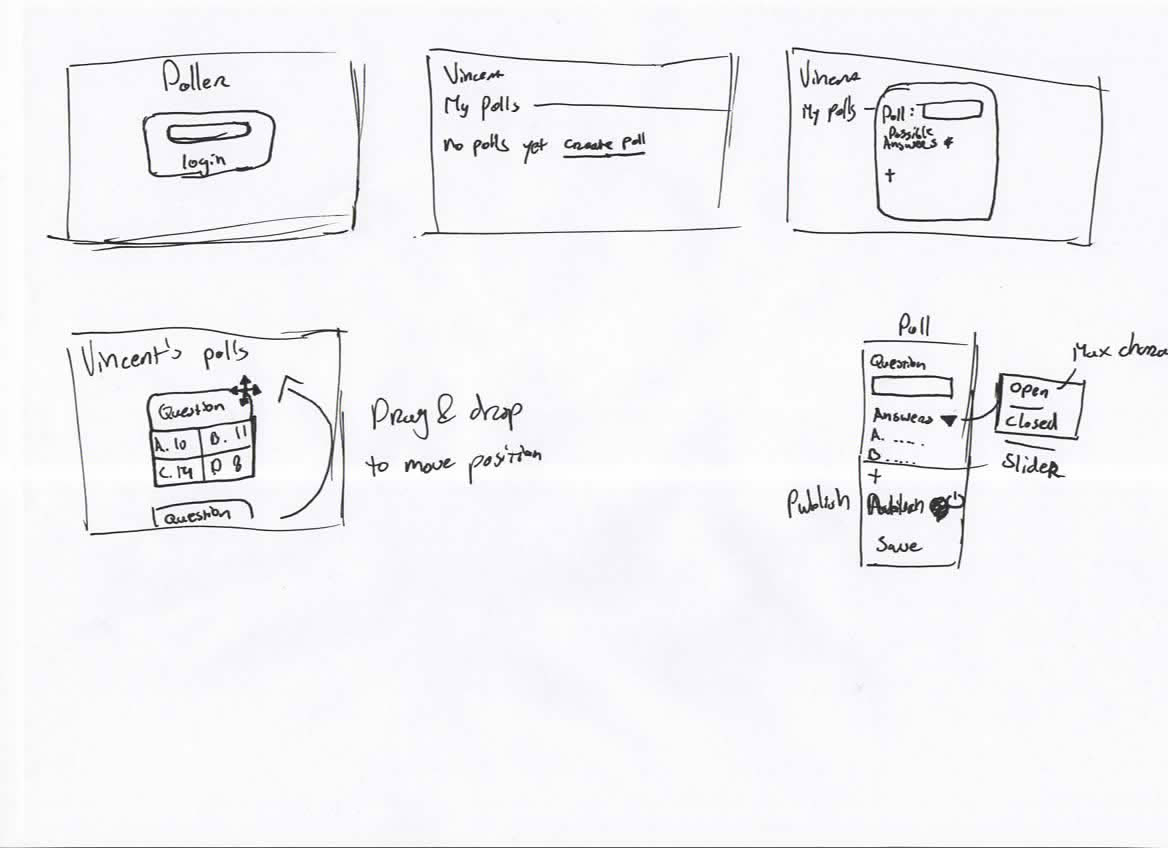 Poller
login
Vincent
My polls
no polls yet create poll
Vincent
My polls
Poll:
Possible
Answers
+
Vincent's polls
Question
A. 10 B. 11
C. 14 D 8
Question
Drag & drop
to move position
Poll
Question
Answers
A. ....
B .....
+
Publish
Publish
Save
Max
Open
Closed
Slider